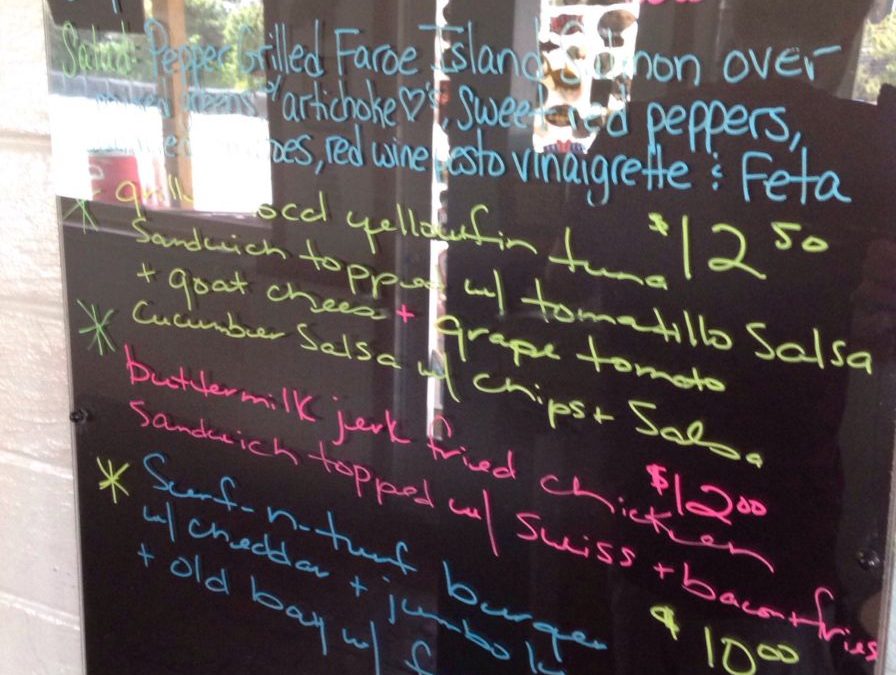 Salad: Pepper Grilled Faroe Island Salmon over
mixed greens w/ artichoke ♡'s, sweet red peppers,
red wine pesto vinaigrette & Feta
yellowfin tuna $12 50
Sandwich topped w/ tomatillo Salsa
+ goat cheese + grape tomato
Cucumber Salsa w/ chips + Salsa
buttermilk jerk fried chicken $12 00
Sandwich topped w/ swiss + bacon + fries
Surf-n-turf burger $10 00
w/ cheddar + jumbo
+ old bay w/